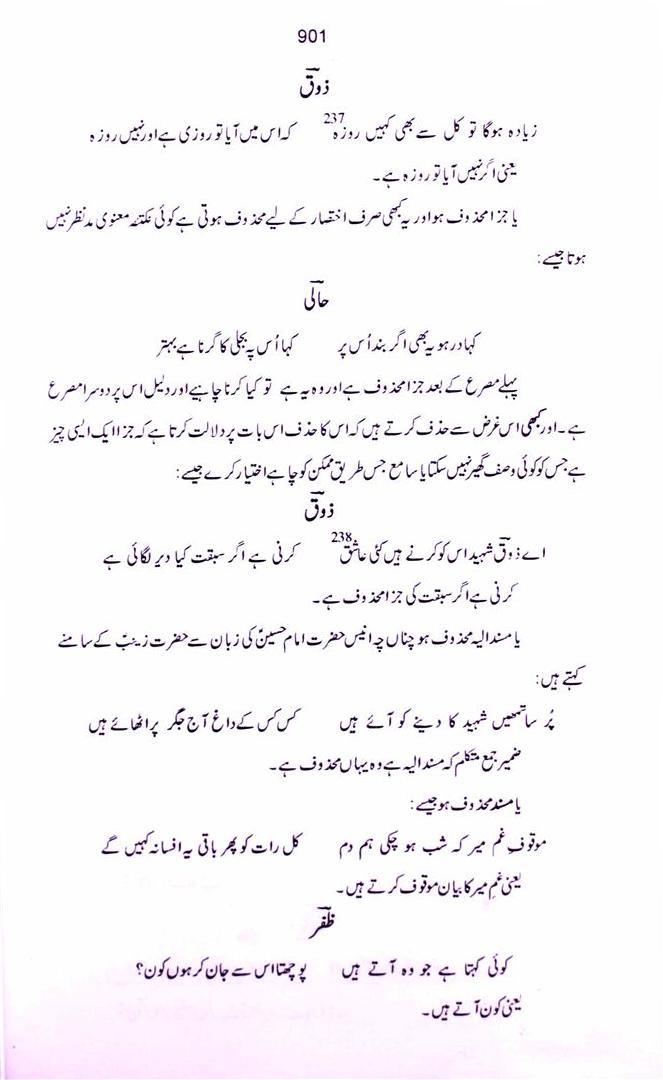 901
ذوقؔ
زیادہ ہوگا تو کل سے بھی کہیں روزہ237 کہ اس میں آیا تو روزی ہے اور نہیں روزہ
یعنی اگر نہیں آیا تو روزہ ہے۔
یا جزا محذوف ہو اور یہ کبھی صرف اختصار کے لیے محذوف ہوتی ہے کوئی نکتئہ معنوی مدنظر نہیں
ہوتا جیسے:
حالیؔ
کہا در ہو یہ بھی اگر بند اُس پر کہا اُس پہ بجلی کا گرنا ہے بہتر
پہلے مصرع کے بعد جزا محذوف ہے اور وہ یہ ہے تو کیا کرنا چاہیے اور دلیل اس پر دوسرا مصرع
ہے۔ اور کبھی اس غرض سے حذف کرتے ہیں کہ اس کا حذف اس بات پر دلالت کرتا ہے کہ جزا ایک ایسی چیز
ہے جس کو کوئی وصف گھیر نہیں سکتا یا سامع جس طریق ممکن کو چاہے اختیار کرے جیسے:
ذوقؔ
اے ذوقؔ شہید اس کو کرنے ہیں کئی عاشق238 کرنی ہے اگر سبقت کیا دیر لگائی ہے
کرنی ہے اگر سبقت کی جزا محذوف ہے۔
یا مسندالیہ محذوف ہو چناں چہ انیس حضرت امام حسینؑ کی زبان سے حضرت زینبؑ کے سامنے
کہتے ہیں:
پُر سا تمھیں شہید کا دینے کو آئے ہیں کس کس کے داغ آج جگر پر اٹھائے ہیں
ضمیر جمع متکلم کہ مسندالیہ ہے وہ یہاں محذوف ہے۔
یا مسند محذوف ہو جیسے:
موقوفِ غم میر کہ شب ہو چکی ہم دم کل رات کو پھر باقی یہ افسانہ کہیں گے
یعنی غمِ میر کا بیان موقوف کرتے ہیں۔
ظفرؔ
کوئی کہتا ہے جو وہ آتے ہیں پوچھتا اس سے جان کر ہوں کون؟
یعنی کون آتے ہیں۔